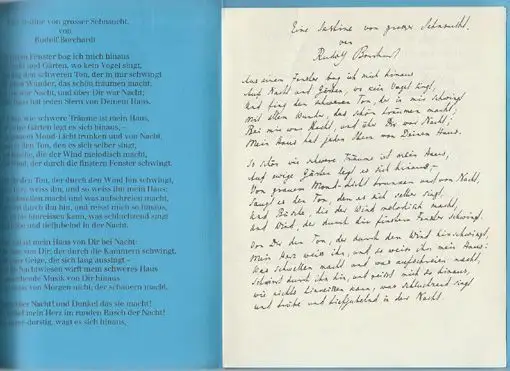 Sestine von grosser Sehnsucht.
von
Rudolf Borchardt
Fenster bog ich mich hinaus
und Gärten, wo kein Vogel singt,
den schweren Ton, der in mir schwingt
Wunder, das schön träumen macht.
war Nacht, und über Dir war Nacht;
hat jeden Stern von Deinem Haus.
wie schwere Träume ist mein Haus,
Gärten legt es sich hinaus,–
Mond-Licht trunken und von Nacht,
den Ton, den es sich selber singt,
die der Wind melodisch macht,
Wind, der durch die finstern Fenster schwingt.
den Ton, der durch den Wind hin schwingt,
weiss ihn, und so weiss ihn mein Haus:
macht und was aufschreien macht,
durch ihn hin, und reisst mich so hinaus,
hinreissen kann, was schluchzend singt
und tiefjubelnd in der Nacht.
ist mein Haus von Dir bei Nacht:
von Dir; der durch die Kammern schwingt,
Geige, die sich lang aussingt –
Nachtwiesen wirft mein schweres Haus
Musik von Dir hinaus
von Morgen nicht, der schauern macht.
der Nacht! und Dunkel das sie macht!
mein Herz im runden Rusch der Nacht!
wagt es sich hinaus,
Eine Sestine von grosser Sehnsucht.
von
Rudolf Borchardt
Aus einem Fenster bog ich mich hinaus
Auf Nacht und Gärten, wo kein Vogel singt,
Und fing den schweren Ton, der in mir schwingt
Mit allem Wunder, das schön träumen macht.
Bei mir war Nacht, und über Dir war Nacht;
Mein Haus hat jeden Stern von Deinem Haus.
So schön wie schwere Träume ist mein Haus,
Auf ewige Gärten legt es sich hinaus –
Von grauem Mond-Licht trunken und von Nacht,
Saugt es den Ton, den es sich selber singt,
Und Büsche, die der Wind melodisch macht,
Und Wind, der durch die finstern Fenster schwingt.
Von Dir den Ton, der durch den Wind hin schwingt,
Mein Herz weiss ihn, und so weiss ihn mein Haus:
Was schwellen macht und was aufschreien macht,
Schwingt durch ihn hin, und reisst mich so hinaus,
Wie nichts hinreissen kann, was schluchzend singt
Und trübe und tiefjubelnd in der Nacht.